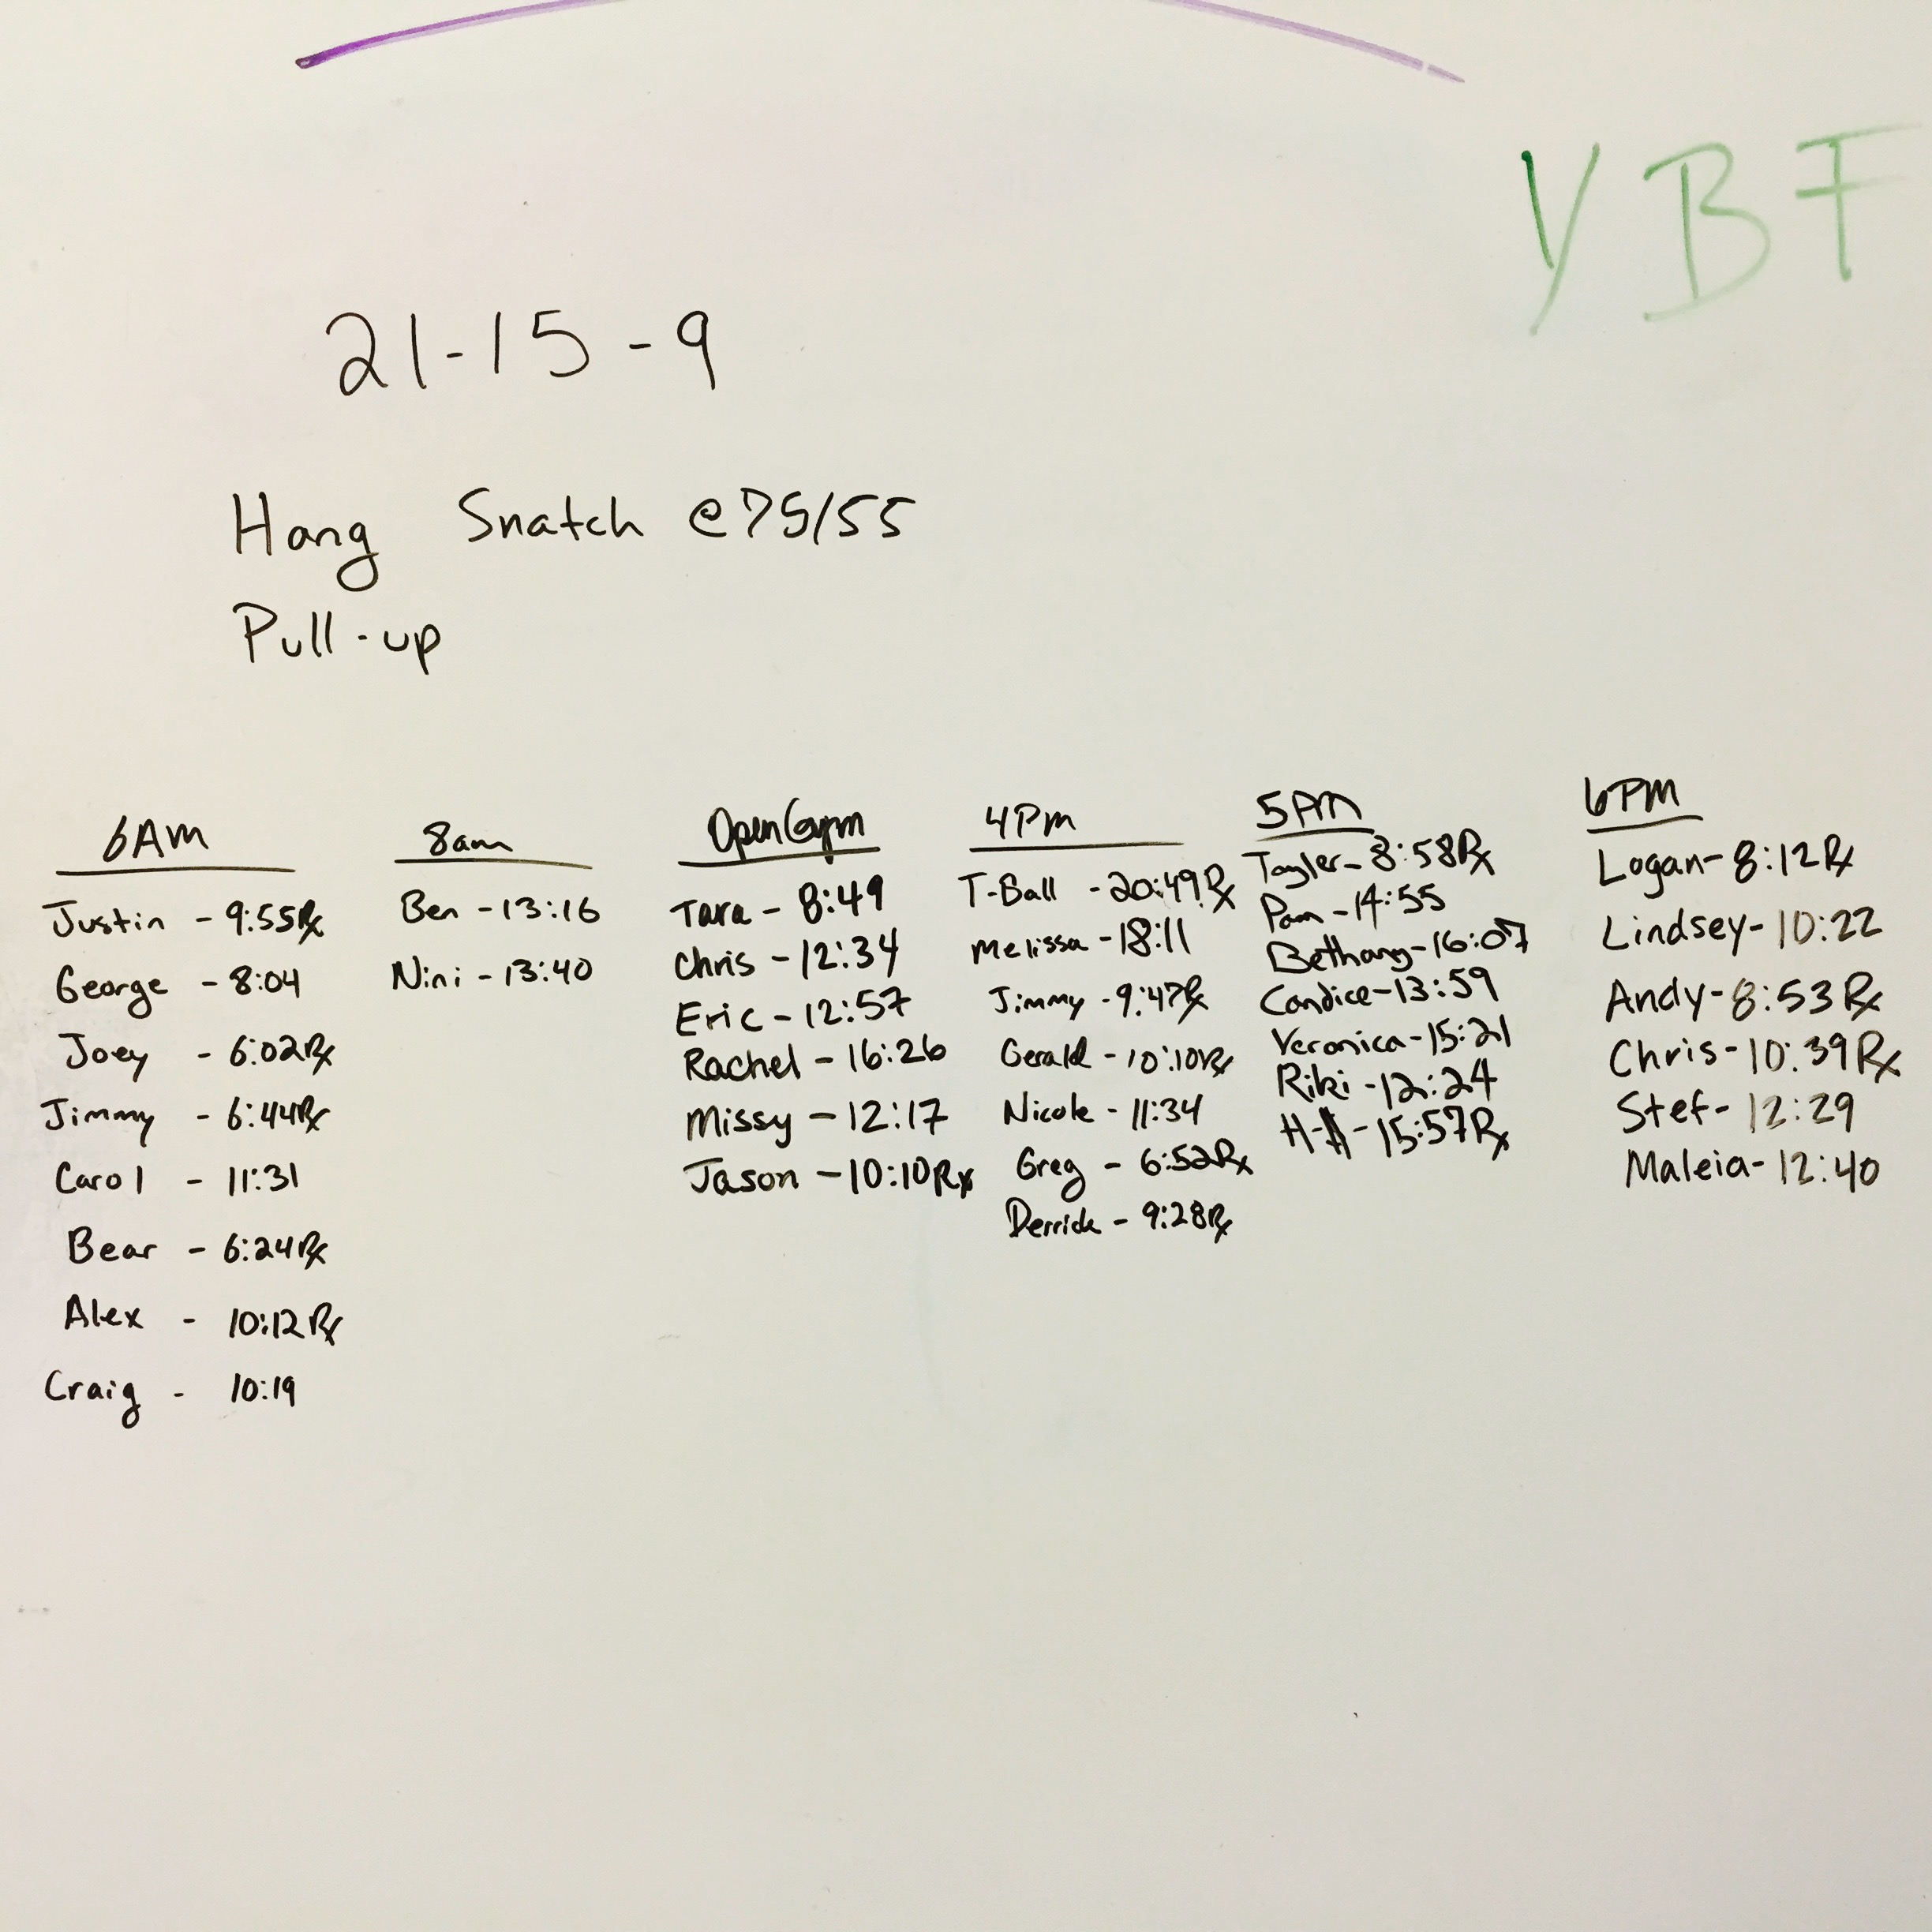 YBF
21-15-9
Hang Snatch @ 75/55
Pull-up
6AM
Justin - 9:55Rx
George - 8:04
Joey - 6:02Rx
Jimmy - 6:44Rx
Carol - 11:31
Bear - 6:24Rx
Alex - 10:12Rx
Craig - 10:19
8am
Ben - 13:16
Nini - 13:40
Open Gym
Tara - 8:49
Chris - 12:34
Eric - 12:57
Rachel - 16:26
Missy - 12:17
Jason - 10:10Rx
4Pm
T-Ball - 20:49Rx
Melissa - 18:11
Jimmy - 9:47Rx
Gerald - 10:10Rx
Nicole - 11:34
Greg - 6:52Rx
Derrick - 9:28Rx
5PM
Tayler - 8:58Rx
Pam - 14:55
Bethany - 16:07
Candice - 13:59
Veronica - 15:21
Riki - 12:24
H-$ - 15:57Rx
6PM
Logan - 8:12Rx
Lindsey - 10:22
Andy - 8:53Rx
Chris - 10:39Rx
Stef - 12:29
Maleia - 12:40